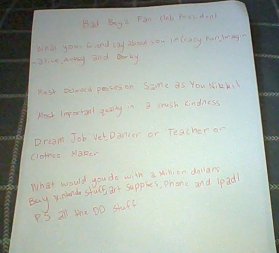 Bad Boys Fan Club President
What your friend say about you in Crazy, Fun, Imagin-
-ative, Artsy and Dorky
Most Beloved possession Same as You Nikki!
Most Important quality in a crush Kindness
Dream Job Vet Dancer or Teacher or
Clothes Maker
What would you do with a Million dollars
Buy Nintendo Stuff, art supplies, Phone and Ipad!
P.S all the DD Stuff